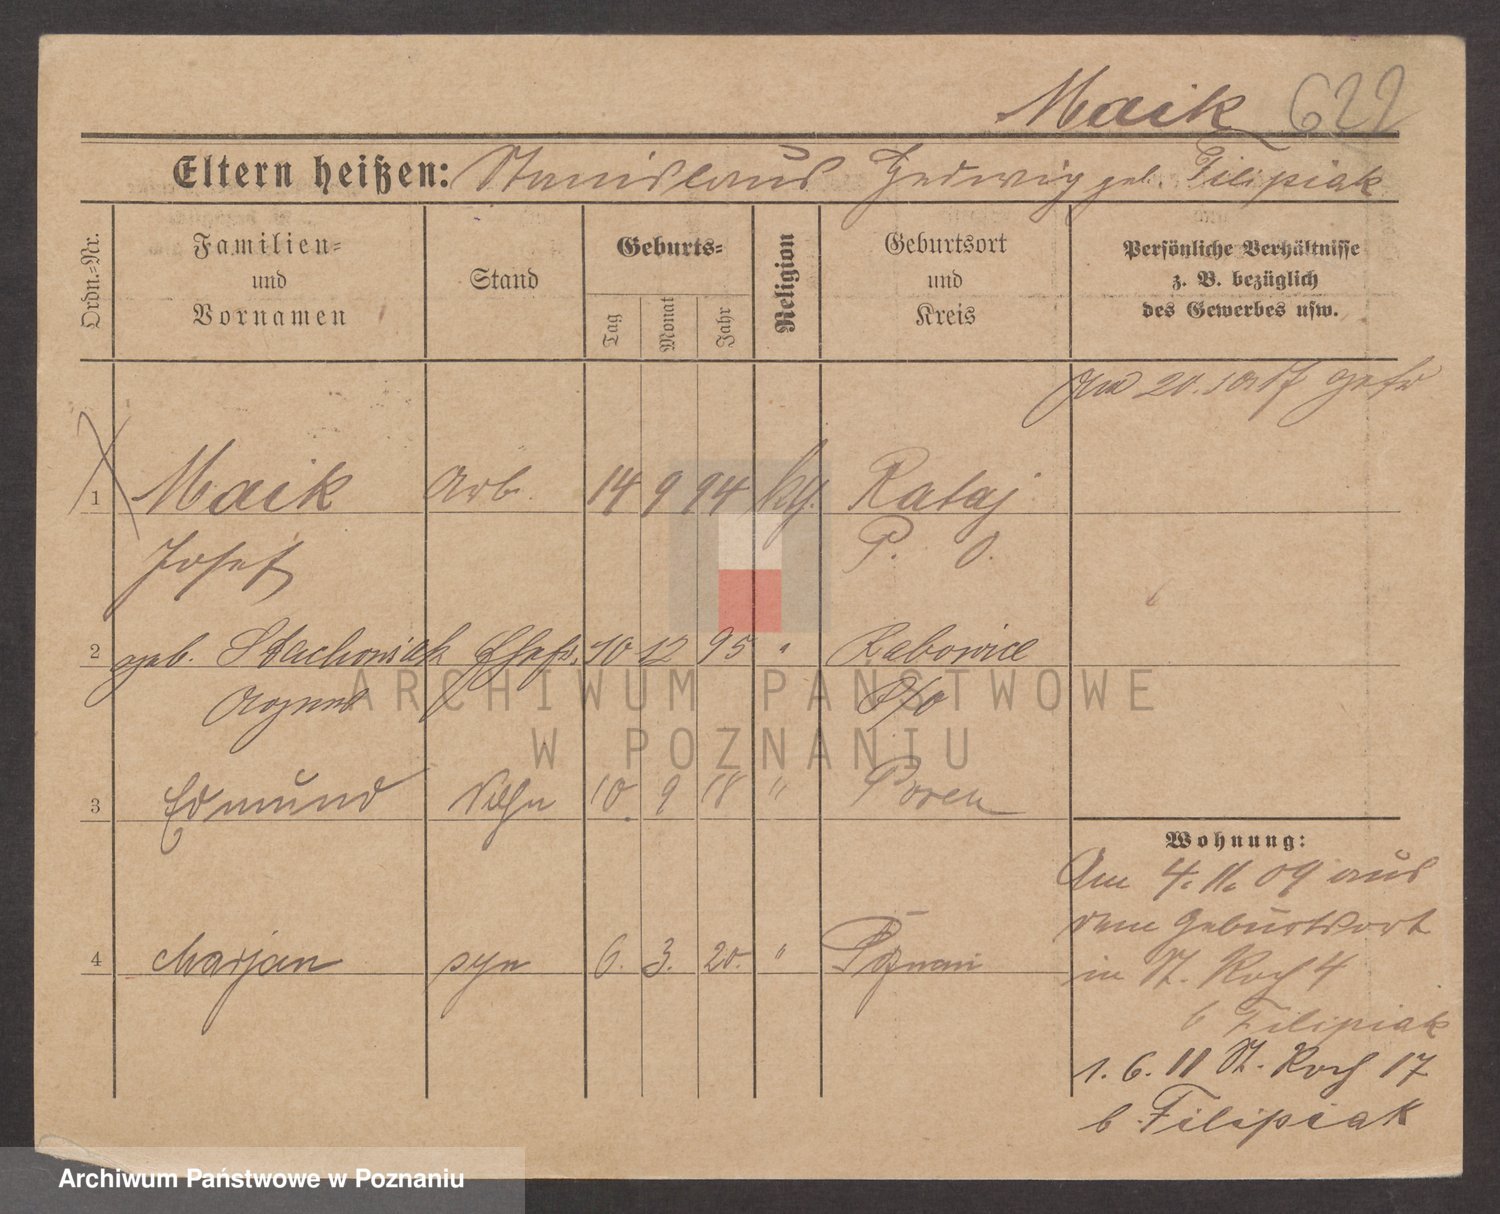 Maik 622
Eltern heißen: Stanislaus Hedwig geb. Filipiak
Ordn.=Nr.
Familien=
und
Vornamen
Stand
Geburts=
Tag
Monat
Jahr
Religion
Geburtsort
und
Kreis
Persönliche Verhältnisse
z. B. bezüglich
des Gewerbes usw.
Am 20.10 17
1 Maik Arb. 14 9 94 Rataj
Josef P. O.
2 geb. Stachowiak Ehefr. 10 12 95 " Rabowice
Agnes P/o
3 Edmund Sohn 10 9 18 " Posen
4 Marjan syn 6. 3. 20. " Poznań
Wohnung:
Am 4. 11. 09 aus
dem Geburtsort
in St. Roch 4
b Filipiak
1. 6. 11 St. Roch 17
b. Filipiak
ARCHIWUM PAŃSTWOWE
W POZNANIU
Archiwum Państwowe w Poznaniu